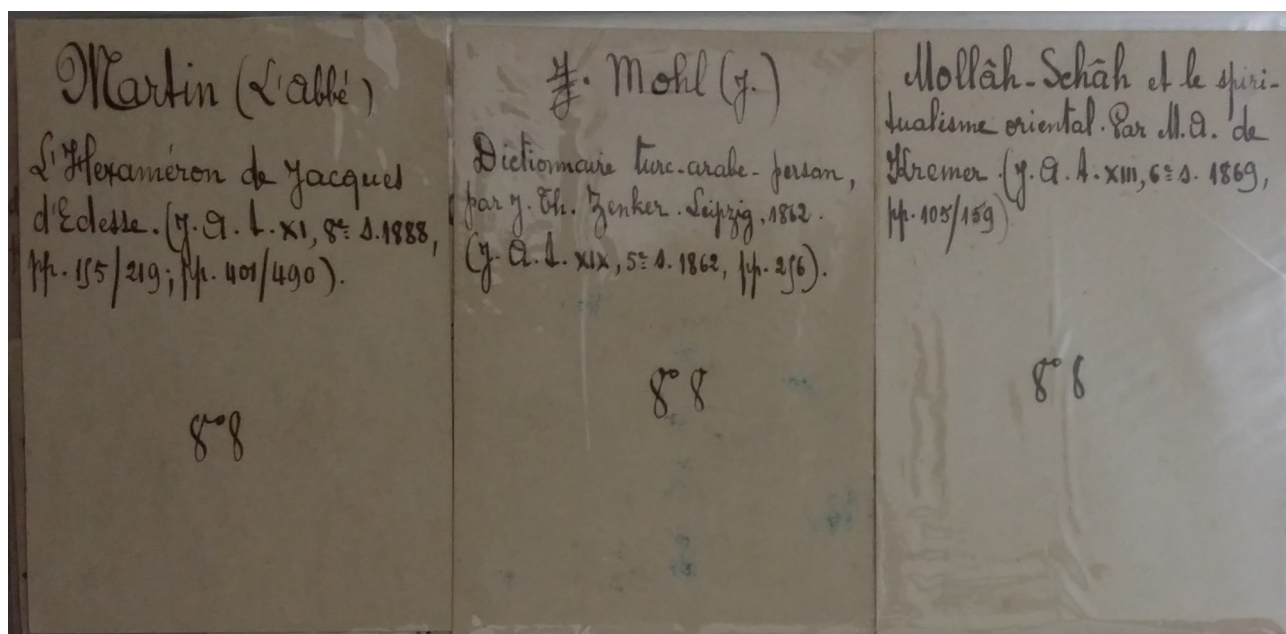 Martin (L'abbé)
L'Hexaméron de Jacques
d'Edesse. (J. A. t. XI, 8e s. 1888,
pp. 155/219; pp. 401/490).
8° 8
J. Mohl (J.)
Dictionnaire turc-arabe-persan,
par J. Th. Zenker. Leipzig, 1862.
(J. A. t. XIX, 5e s. 1862, pp. 256).
8° 8
Mollâh-Schâh et le spiri-
tualisme oriental. Par M. A. de
Kremer. (J. A. t. XIII, 6e s. 1869,
pp. 105/159)
8° 8